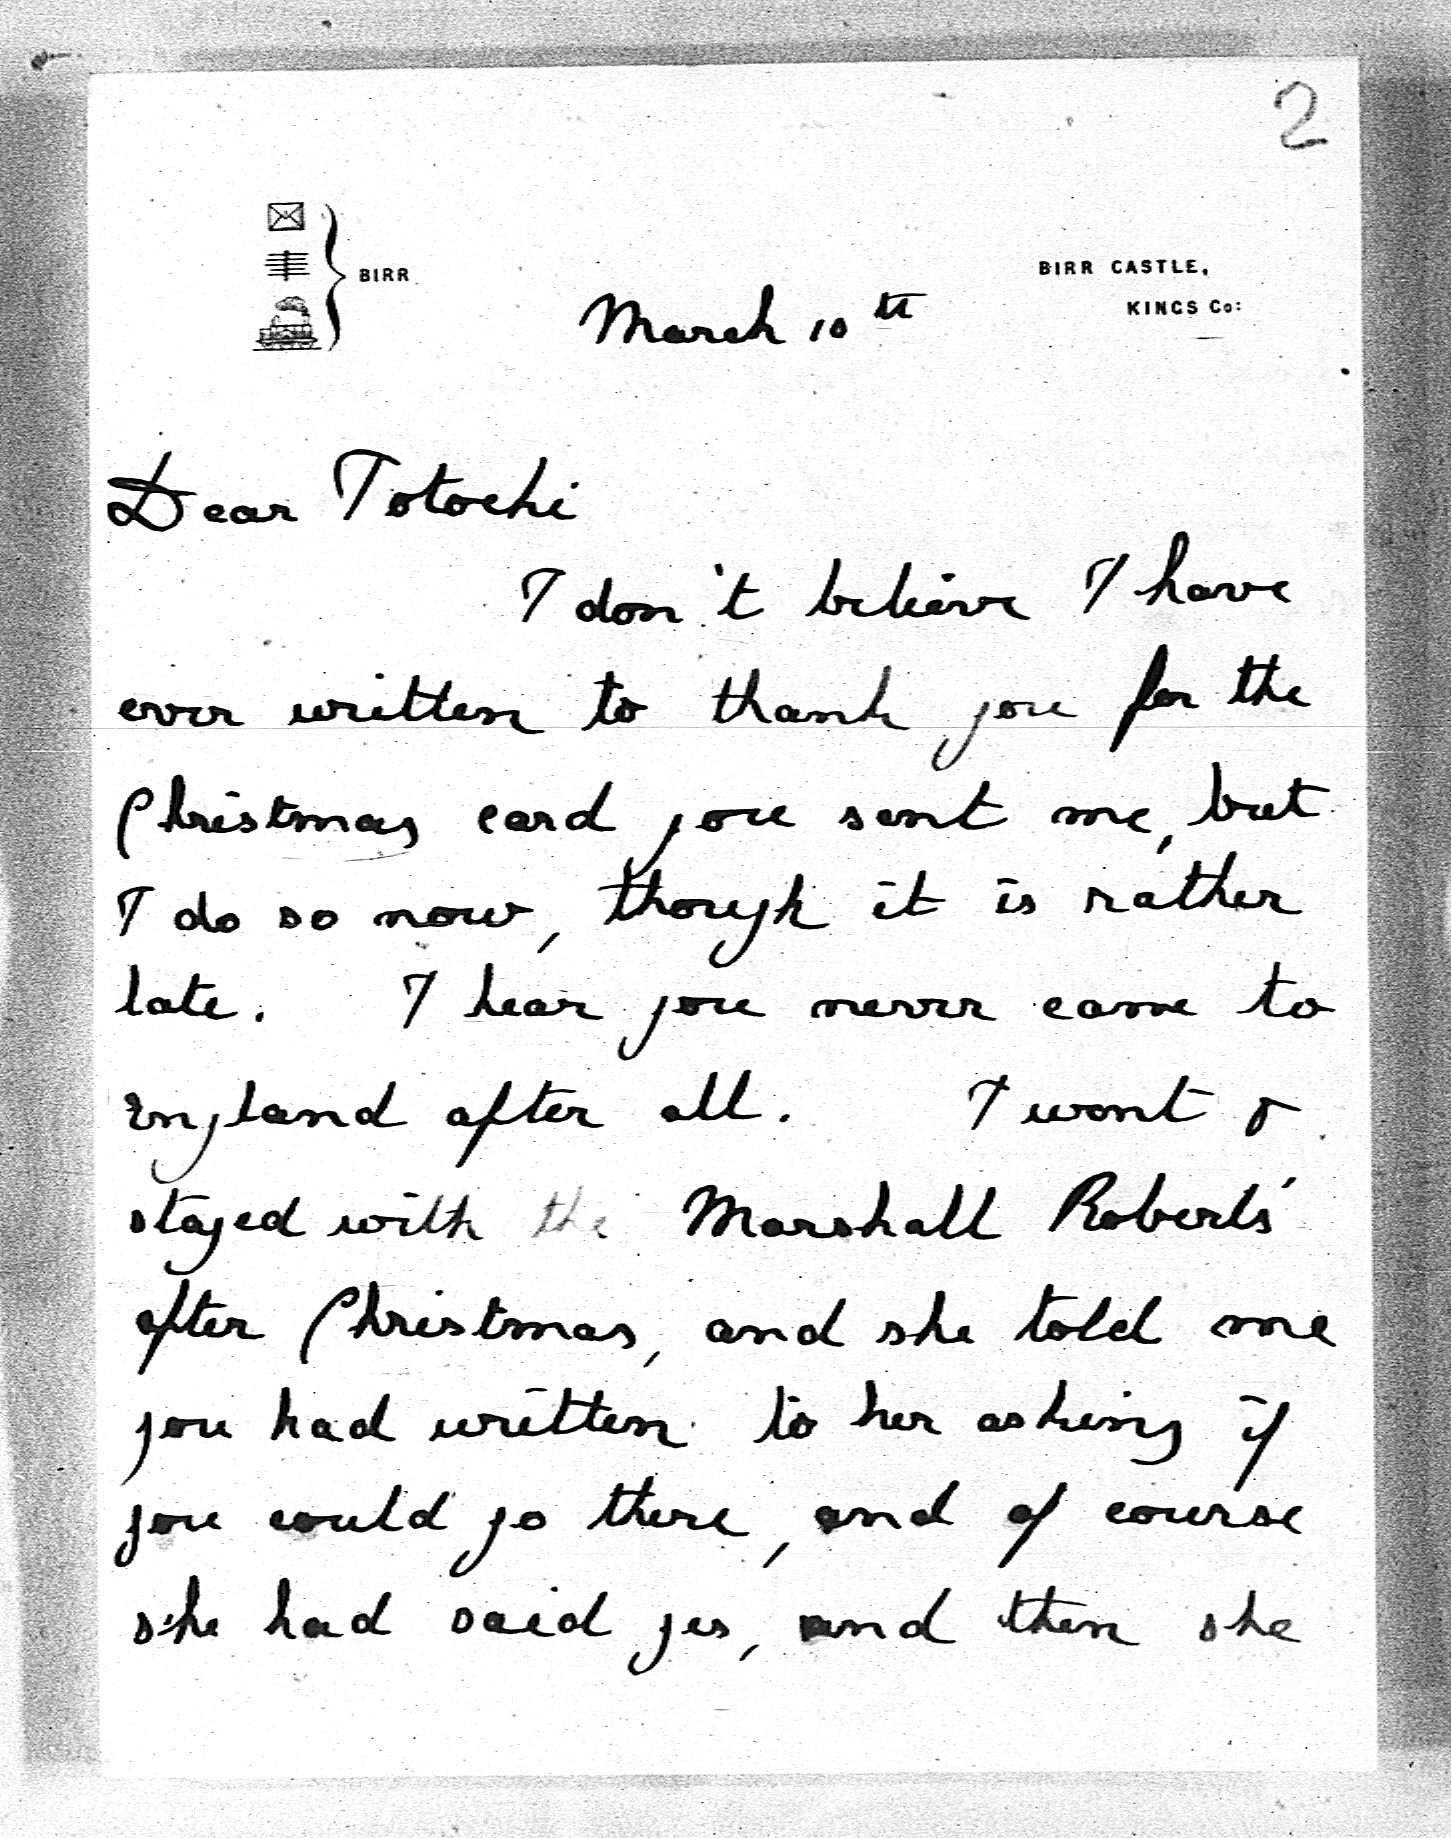 2
BIRR
BIRR CASTLE,
KINGS Co:
March 10th
Dear Totochi
I don't believe I have
ever written to thank you for the
Christmas card you sent me, but
I do so now, though it is rather
late. I hear you never came to
England after all. I went &
stayed with the Marshall Roberts'
after Christmas, and she told me
you had written to her asking if
you could go there, and of course
she had said yes, and then she